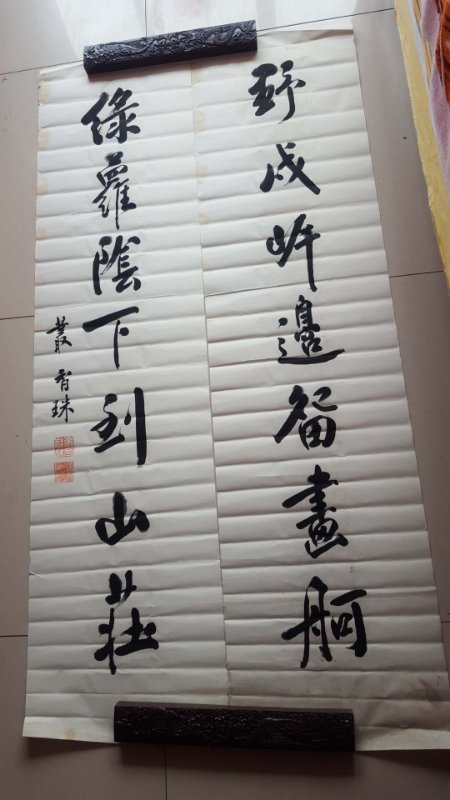 野戍岸邊留畫舸
綠蘿陰下到山莊
叢 珠